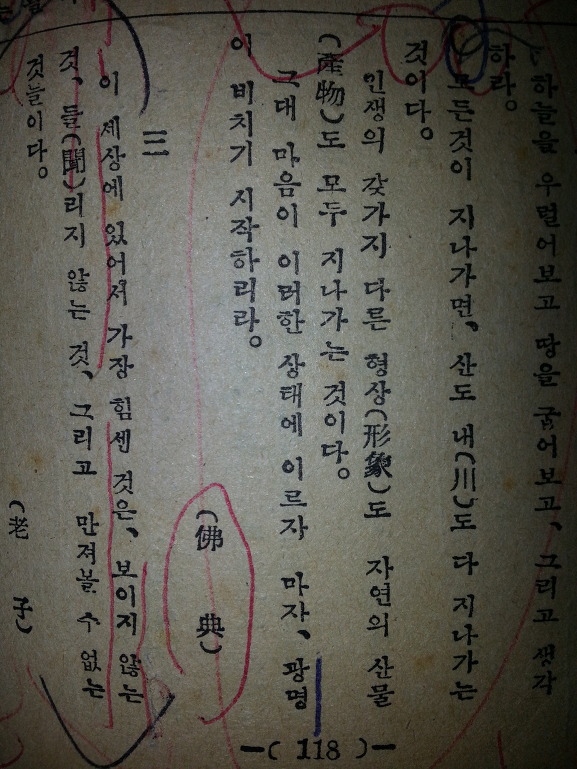 하늘을 우럴어보고 땅을 굽어보고、그리고 생각
하라。
모든것이 지나가면、산도 내(川)도 다 지나가는
것이다。
인생의 갖가지 다른 형상(形象)도 자연의 산물
(産物)도 모두 지나가는 것이다。
그대 마음이 이러한 상태에 이르자 마자、광명
이 비치기 시작하리라。
(佛典)
三
이 세상에 있어서 가장 힘센 것은、보이지 않는
것、들(聞)리지 않는 것、그리고 만져볼 수 없는
것들이다。
(老子)
—( 118 )—